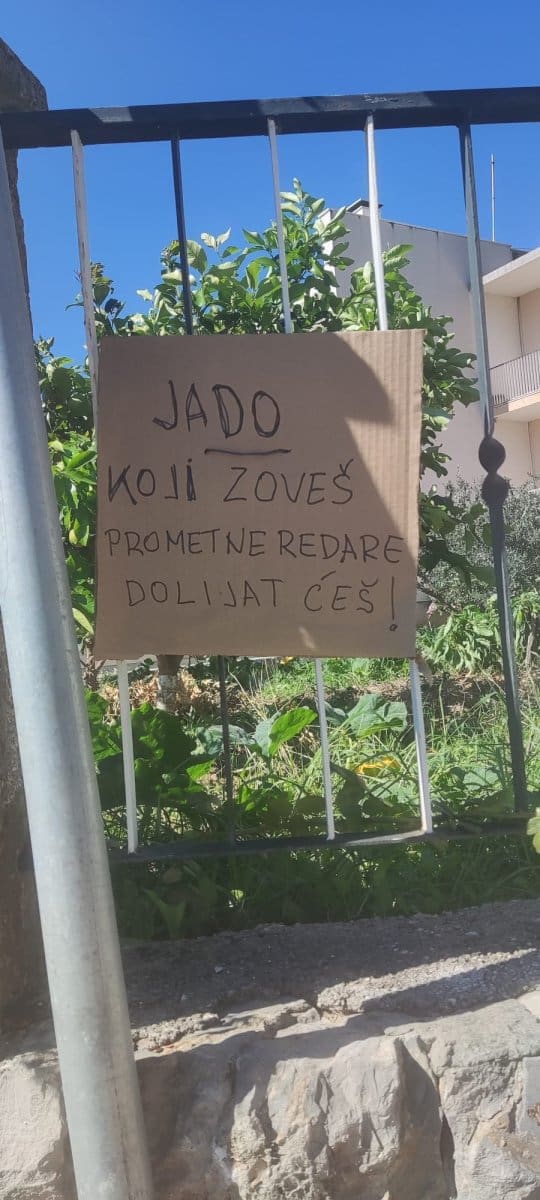 JADO
KOJI ZOVEŠ
PROMETNE REDARE
DOLIJAT ĆEŠ!